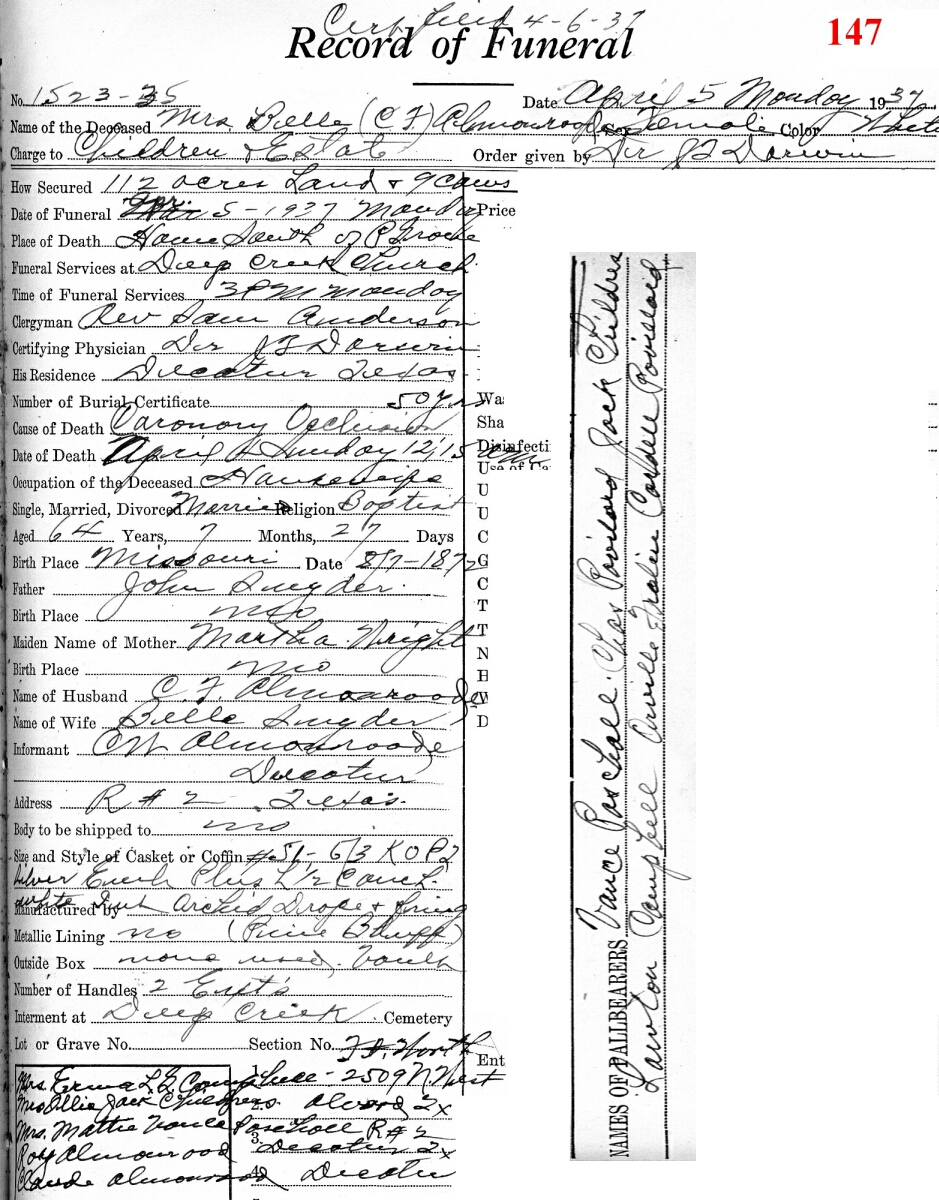 Cert filed 4-6-37
147
Record of Funeral
No. 1523-35 Date April 5 Monday 1937
Name of the Deceased Mrs. Belle (C F) Almonroode Sex Female Color White
Charge to Children & Estate Order given by Dr J F Darwin
How Secured 112 acres Land & 9 cows
Date of Funeral Apr. 5-1937 Monday Price
Place of Death Home South of
Funeral Services at Deep Creek Church
Time of Funeral Services 3 PM Monday
Clergyman Rev Sam Anderson
Certifying Physician Dr J F Darwin
His Residence Decatur Texas
Number of Burial Certificate 50 yrs Wa
Sha
Cause of Death Coronary Occlusion
Disinfecti
Date of Death April 4 Sunday 12;15 am
Use of Ca
Occupation of the Deceased Housewife U
Single, Married, Divorced Married Religion Baptist U
Aged 64 Years, 7 Months, 27 Days C
Birth Place Missouri Date 8/7-1872 G
Father John Snyder C
Birth Place Mo T
Maiden Name of Mother Martha Wright T
Birth Place Mo N
Name of Husband C. F. Almonroode
Name of Wife Belle Snyder D
Informant C W Almonroode
Decatur
Address R # 2 Texas.
Body to be shipped to no
Size and Style of Casket or Coffin 6/3
Silver Plus Couch
Manufactured by Orchid Drape & Lining
Metallic Lining no (Pine Bluff)
Outside Box none used. Vault
Number of Handles 2 Ext's
Interment at Deep Creek Cemetery
Lot or Grave No. Section No. Ft. Worth
Ent
Mrs. Erma L. Campbell - 2509 N. West
Mrs Ollie Jack Childress 2. Alvord Tx
Mrs. Mattie Vance Paschall R # 2
3. Decatur Tx
Roy Almonrood
Claude Almonrood 4. Decatur
NAMES OF PALLBEARERS Vance Paschall. Chas Jack Childres
Lawton Campbell Orville